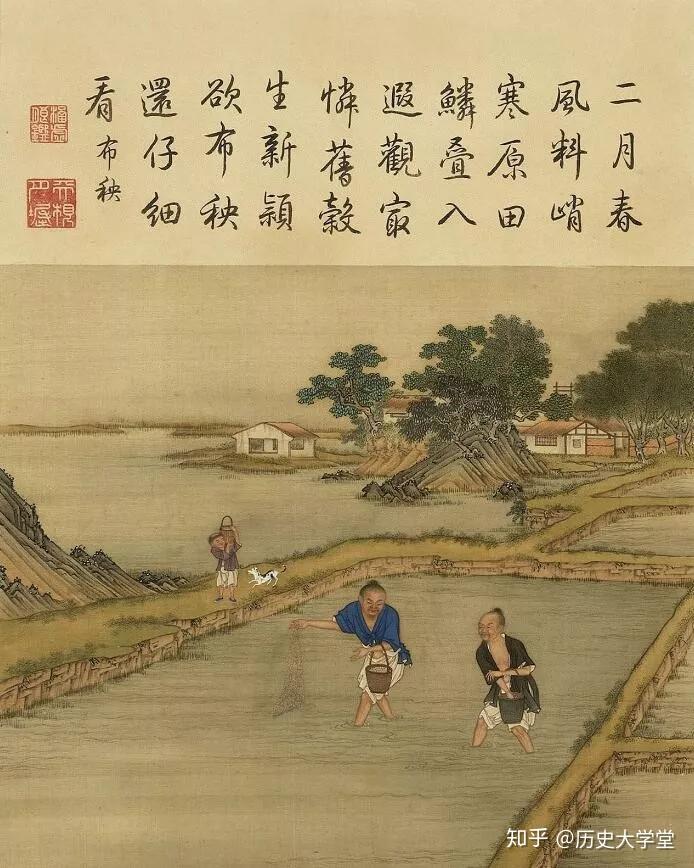 二月春
風料峭
寒原田
鱗疊入
遐觀寂
憐舊穀
生新穎
欲布秧
還仔細
看 布秧
知乎 @历史大学堂